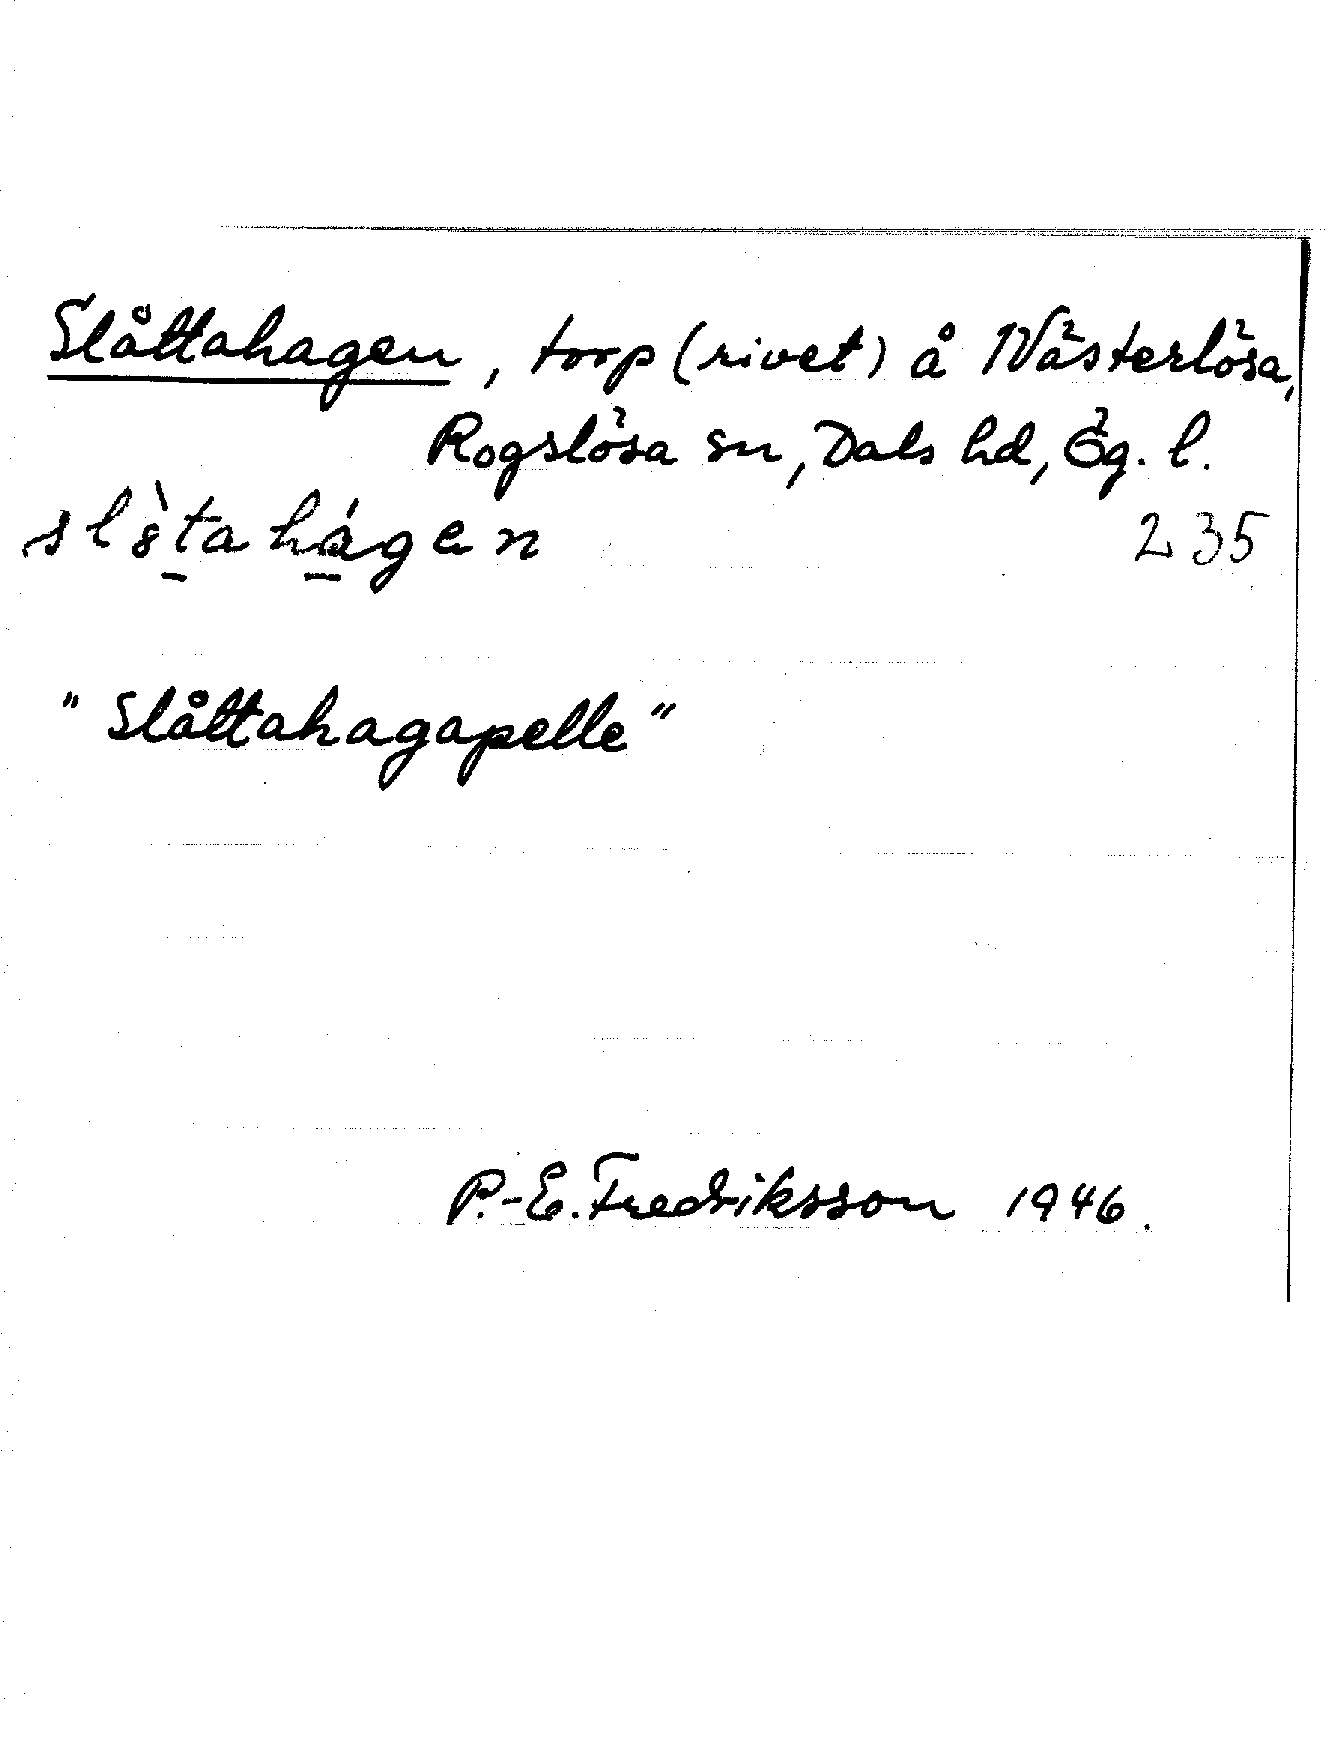 Slåttahagen, torp (rivet) å Västerlösa,
Rogslösa sn, Dals hd, Ög. l.
235
"Slåttahagapelle"
P.-E. Fredriksson 1946.